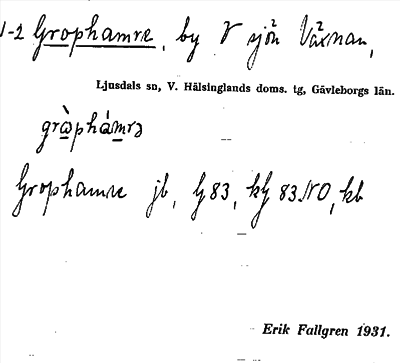 1-2 Grophamre, by V sjön Växnan,
Ljusdals sn, V. Hälsinglands doms. tg, Gävleborgs län.
grɷ̀phámrə
Grophamre jb, G 83, kG 83 NO, kb
Erik Fallgren 1931.